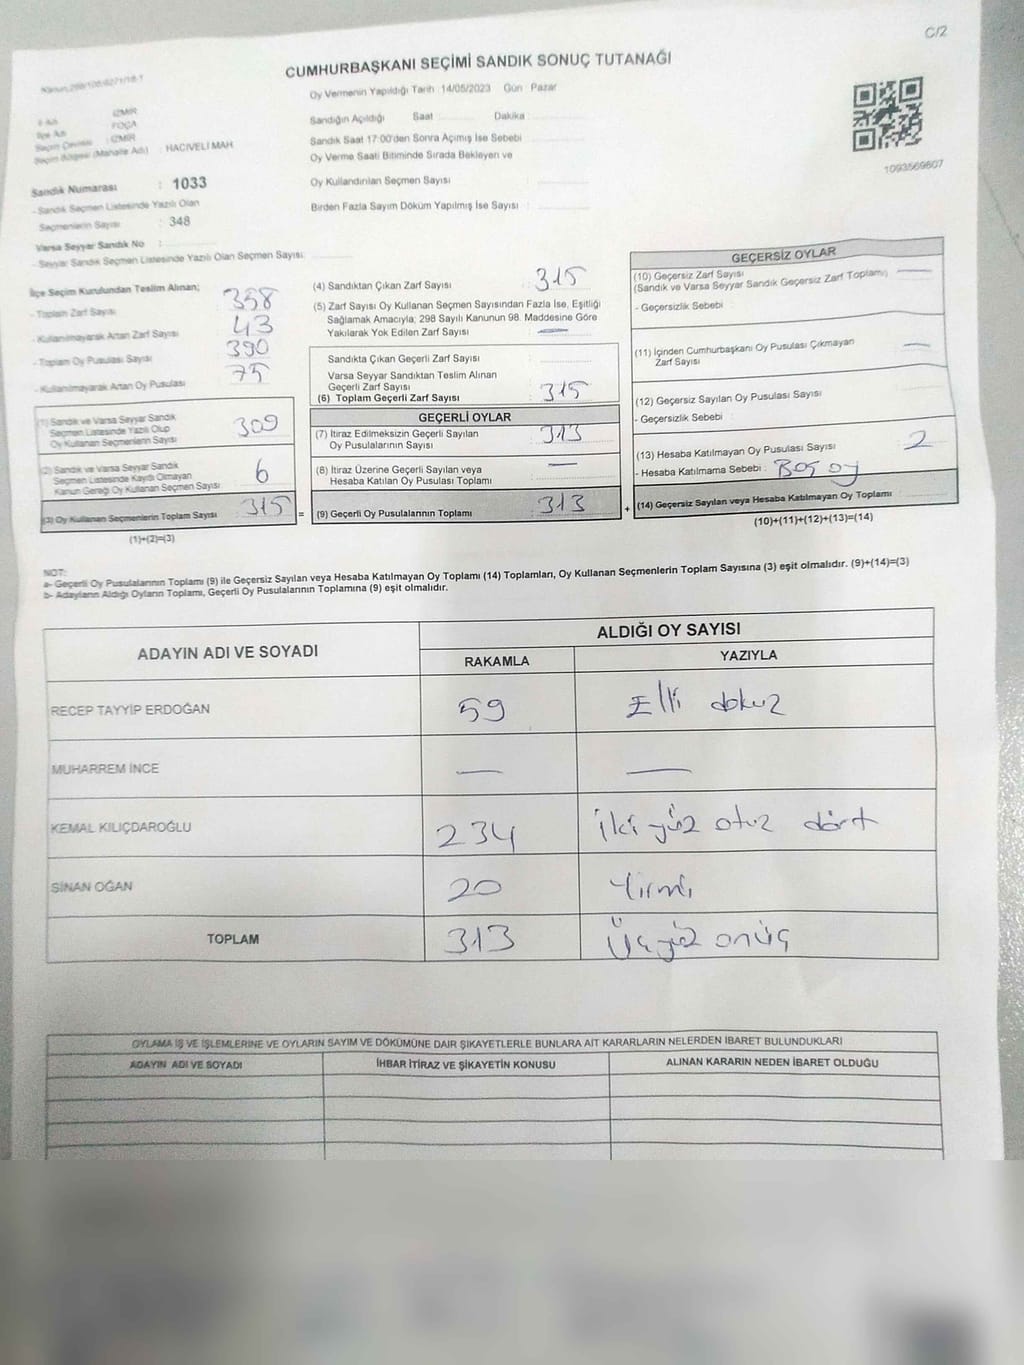 C/2
CUMHURBAŞKANI SEÇİMİ SANDIK SONUÇ TUTANAĞI
Oy Vermenin Yapıldığı Tarih : 14/05/2023 Gün : Pazar
İl Adı : İZMİR
İlçe Adı : FOÇA
Seçim Çevresi : İZMİR
Seçim Bölgesi (Mahalle Adı) : HACIVELİ MAH
Sandık Numarası : 1033
- Sandık Seçmen Listesinde Yazılı Olan
Seçmenlerin Sayısı : 348
Varsa Seyyar Sandık No :
- Seyyar Sandık Seçmen Listesinde Yazılı Olan Seçmen Sayısı:
Sandığın Açıldığı Saat Dakika :
Sandık Saat 17:00'den Sonra Açımış İse Sebebi :
Oy Verme Saati Bitiminde Sırada Bekleyen ve
Oy Kullandırılan Seçmen Sayısı :
Birden Fazla Sayım Döküm Yapılmış İse Sayısı :
1093569807
İlçe Seçim Kurulundan Teslim Alınan;
- Toplam Zarf Sayısı : 358
- Kullanılmayarak Artan Zarf Sayısı : 43
- Toplam Oy Pusulası Sayısı : 390
- Kullanılmayarak Artan Oy Pusulası : 75
(1) Sandık ve Varsa Seyyar Sandık
Seçmen Listesinde Yazılı Olup
Oy Kullanan Seçmenlerin Sayısı : 309
(2) Sandık ve Varsa Seyyar Sandık
Seçmen Listesinde Kayıtlı Olmayan
Kanun Gereği Oy Kullanan Seçmen Sayısı : 6
(3) Oy Kullanan Seçmenlerin Toplam Sayısı : 315 =
(1)+(2)=(3)
(4) Sandıktan Çıkan Zarf Sayısı : 315
(5) Zarf Sayısı Oy Kullanan Seçmen Sayısından Fazla İse, Eşitliği
Sağlamak Amacıyla; 298 Sayılı Kanunun 98. Maddesine Göre
Yakılarak Yok Edilen Zarf Sayısı : —
Sandıkta Çıkan Geçerli Zarf Sayısı :
Varsa Seyyar Sandıktan Teslim Alınan
Geçerli Zarf Sayısı :
(6) Toplam Geçerli Zarf Sayısı : 315
GEÇERLİ OYLAR
(7) İtiraz Edilmeksizin Geçerli Sayılan
Oy Pusulalarının Sayısı : 313
(8) İtiraz Üzerine Geçerli Sayılan veya
Hesaba Katılan Oy Pusulası Toplamı : —
(9) Geçerli Oy Pusulalarının Toplamı : 313 +
GEÇERSİZ OYLAR
(10) Geçersiz Zarf Sayısı
(Sandık ve Varsa Seyyar Sandık Geçersiz Zarf Toplamı) : —
- Geçersizlik Sebebi :
(11) İçinden Cumhurbaşkanı Oy Pusulası Çıkmayan
Zarf Sayısı : —
(12) Geçersiz Sayılan Oy Pusulası Sayısı :
- Geçersizlik Sebebi :
(13) Hesaba Katılmayan Oy Pusulası Sayısı : 2
- Hesaba Katılmama Sebebi : BOŞ oy
(14) Geçersiz Sayılan veya Hesaba Katılmayan Oy Toplamı :
(10)+(11)+(12)+(13)=(14)
NOT:
a- Geçerli Oy Pusulalarının Toplamı (9) ile Geçersiz Sayılan veya Hesaba Katılmayan Oy Toplamı (14) Toplamları, Oy Kullanan Seçmenlerin Toplam Sayısına (3) eşit olmalıdır. (9)+(14)=(3)
b- Adayların Aldığı Oyların Toplamı, Geçerli Oy Pusulalarının Toplamına (9) eşit olmalıdır.
ADAYIN ADI VE SOYADI ALDIĞI OY SAYISI
RAKAMLA YAZIYLA
RECEP TAYYİP ERDOĞAN 59 Elli dokuz
MUHARREM İNCE — —
KEMAL KILIÇDAROĞLU 234 iki yüz otuz dört
SİNAN OĞAN 20 Yirmi
TOPLAM 313 Üçyüz onüç
OYLAMA İŞ VE İŞLEMLERİNE VE OYLARIN SAYIM VE DÖKÜMÜNE DAİR ŞİKAYETLERLE BUNLARA AİT KARARLARIN NELERDEN İBARET BULUNDUKLARI
ADAYIN ADI VE SOYADI İHBAR İTİRAZ VE ŞİKAYETİN KONUSU ALINAN KARARIN NEDEN İBARET OLDUĞU